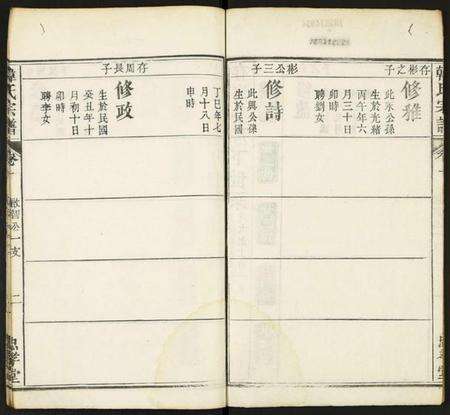 韓氏宗譜
卷一
存彬之子
修雅
此承公孫
生於光緒
丙午年六
月三十日
卯時
聘劉女
彬公三子
修詩
此與公孫
生於民國
丁巳年七
月十八日
申時
存周長子
修政
生於民國
癸丑年十
月初十日
卯時
聘李女
韓氏宗譜
卷一
公一支
二
忠孝堂